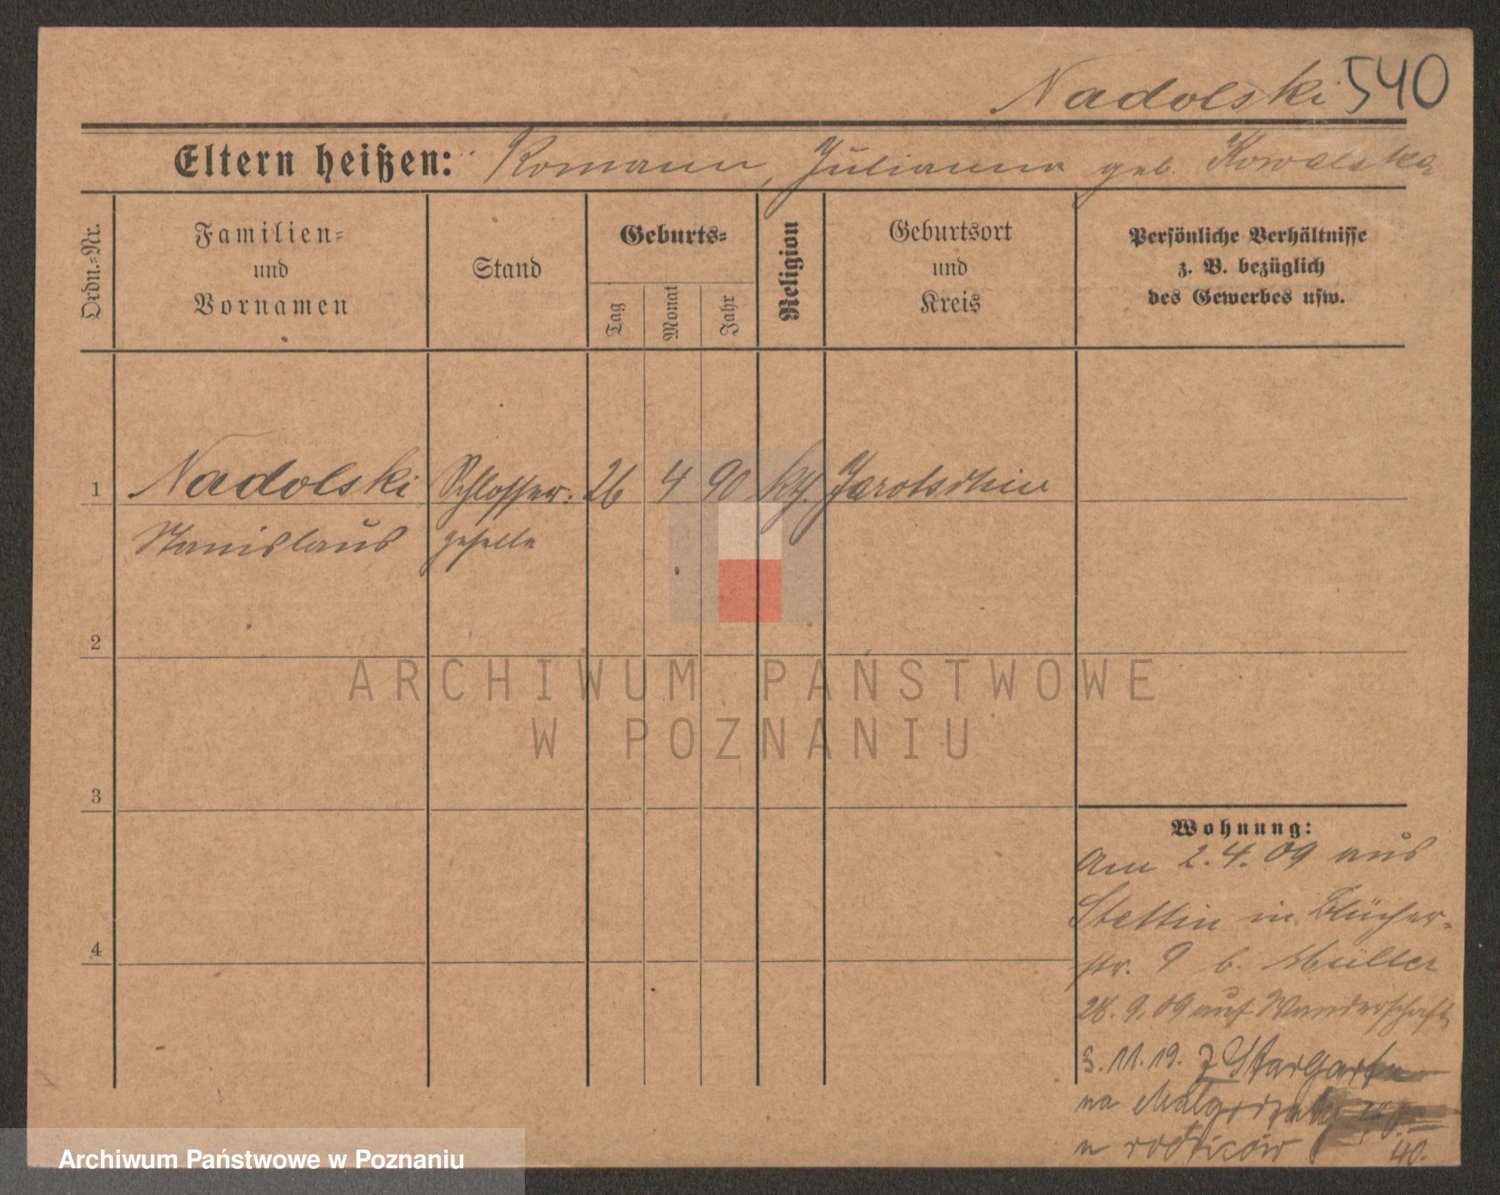 Nadolski 540
Eltern heißen: Romann, Julianna geb. Kowalska
Ordn.-Nr.
Familien-
und
Vornamen
Stand
Geburts-
Tag
Monat
Jahr
Religion
Geburtsort
und
Kreis
Persönliche Verhältnisse
z. B. bezüglich
des Gewerbes usw.
1 Nadolski Schlosser- 26 4 90 kth. Jarotschin
Stanislaus geselle
2
3
4
Wohnung:
Am 2.4.09 aus
Stettin in Blücher-
str. 9 b. Müller
28.9.09 auf Wanderschaft
3.11.19. z Stargartu
na
u rodziców 40.
ARCHIWUM PAŃSTWOWE
W POZNANIU
Archiwum Państwowe w Poznaniu